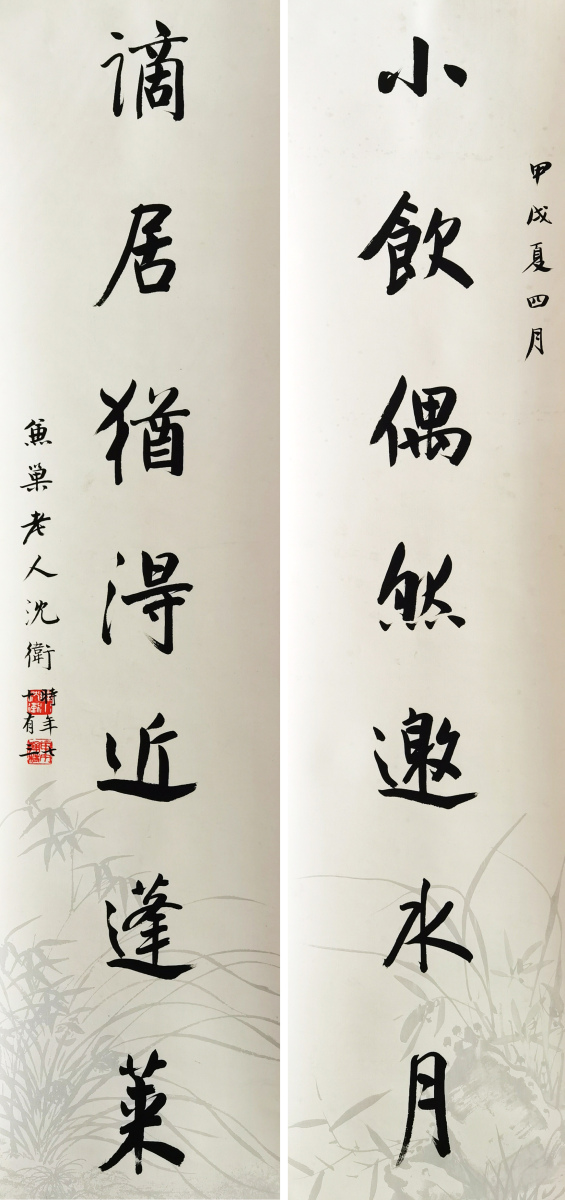 甲戌夏四月
小飲偶然邀水月
謫居猶得近蓬萊
兼巢老人沈衛
時年七
十有三